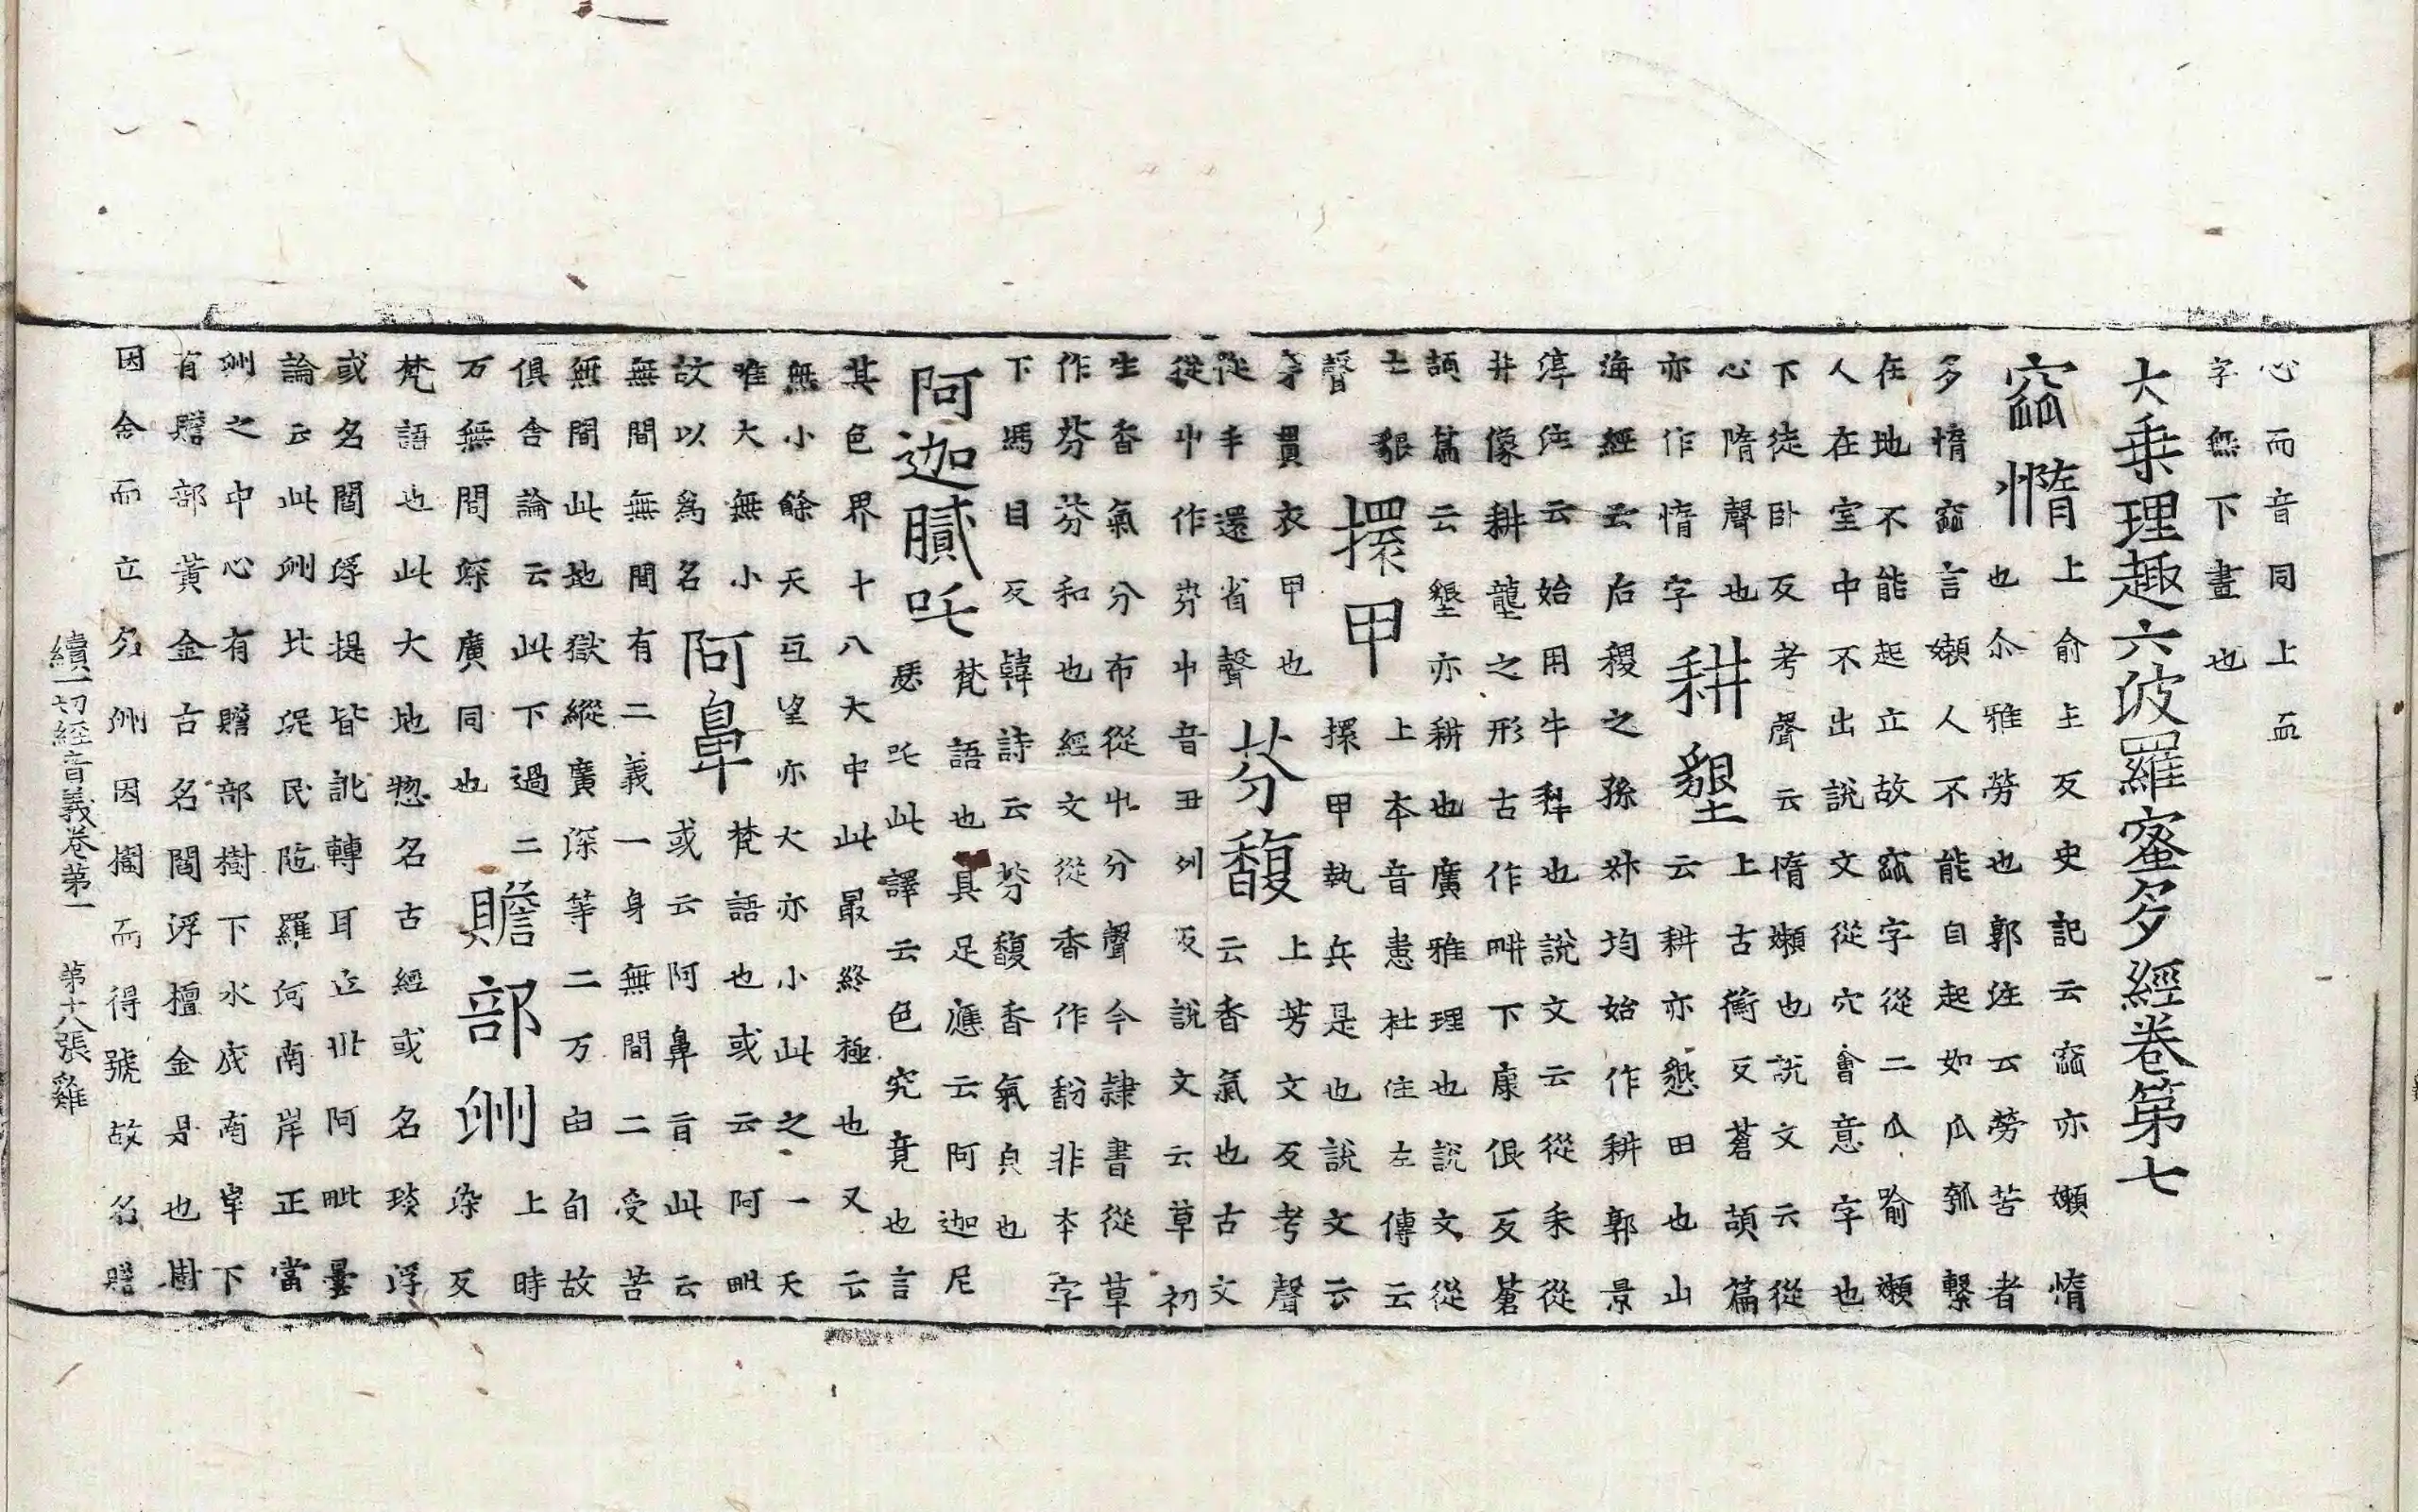 心而音同上而
字無下畫也
大乘理趣六波羅蜜多經卷第七
窳惰
上俞主反史記云窳亦嬾惰
也尒雅勞也郭注云勞苦者
多惰窳言嬾人不能自起如瓜瓠繫
在地不能起立故窳字從二瓜喻嬾
人在室中不出說文從穴會意字也
下徒卧反考聲云惰嬾也說文云從
心隋聲也
亦作惰字
耕墾
上古衡反蒼頡篇
云耕亦懇田也山
海經云后稷之孫叔均始作耕郭景
淳注云始用牛犁也說文云從耒從
井像耕壟之形古作畊下康佷反蒼
頡篇云墾亦耕也廣雅理也說文從
土貇
聲
擐甲
上本音患杜注左傳云
擐甲執兵是也說文云
穿貫衣甲也
從手還省聲
芬馥
上芳文反考聲
云香氣也古文
從屮作芬屮音丑列反說文云草初
生香氣分布從屮分聲今隸書從草
作芬芬和也經文從香作馚非本字
下馮目反韓詩云芬馥香氣皃也
阿迦膩吒
梵語也具足應云阿迦尼
瑟吒此譯云色究竟也言
其色界十八天中此最終極也又云
無小餘天互望亦大亦小此之一天
唯大無小
故以爲名
阿鼻
梵語也或云阿毗
或云阿鼻旨此云
無間無間有二義一身無間二受苦
無間此地獄縱廣深等二万由旬故
俱舍論云此下過二
万無間深廣同也
贍部洲
上時
染反
梵語也此大地惣名古經或名琰浮
或名閻浮提皆訛轉耳立世阿毗曇
論云此洲北泥民陁羅河南岸正當
洲之中心有贍部樹下水底南岸下
有贍部黃金古名閻浮檀金是也樹
因金而立名洲因樹而得號故名贍
續一切經音義卷第一 第十八張 雞